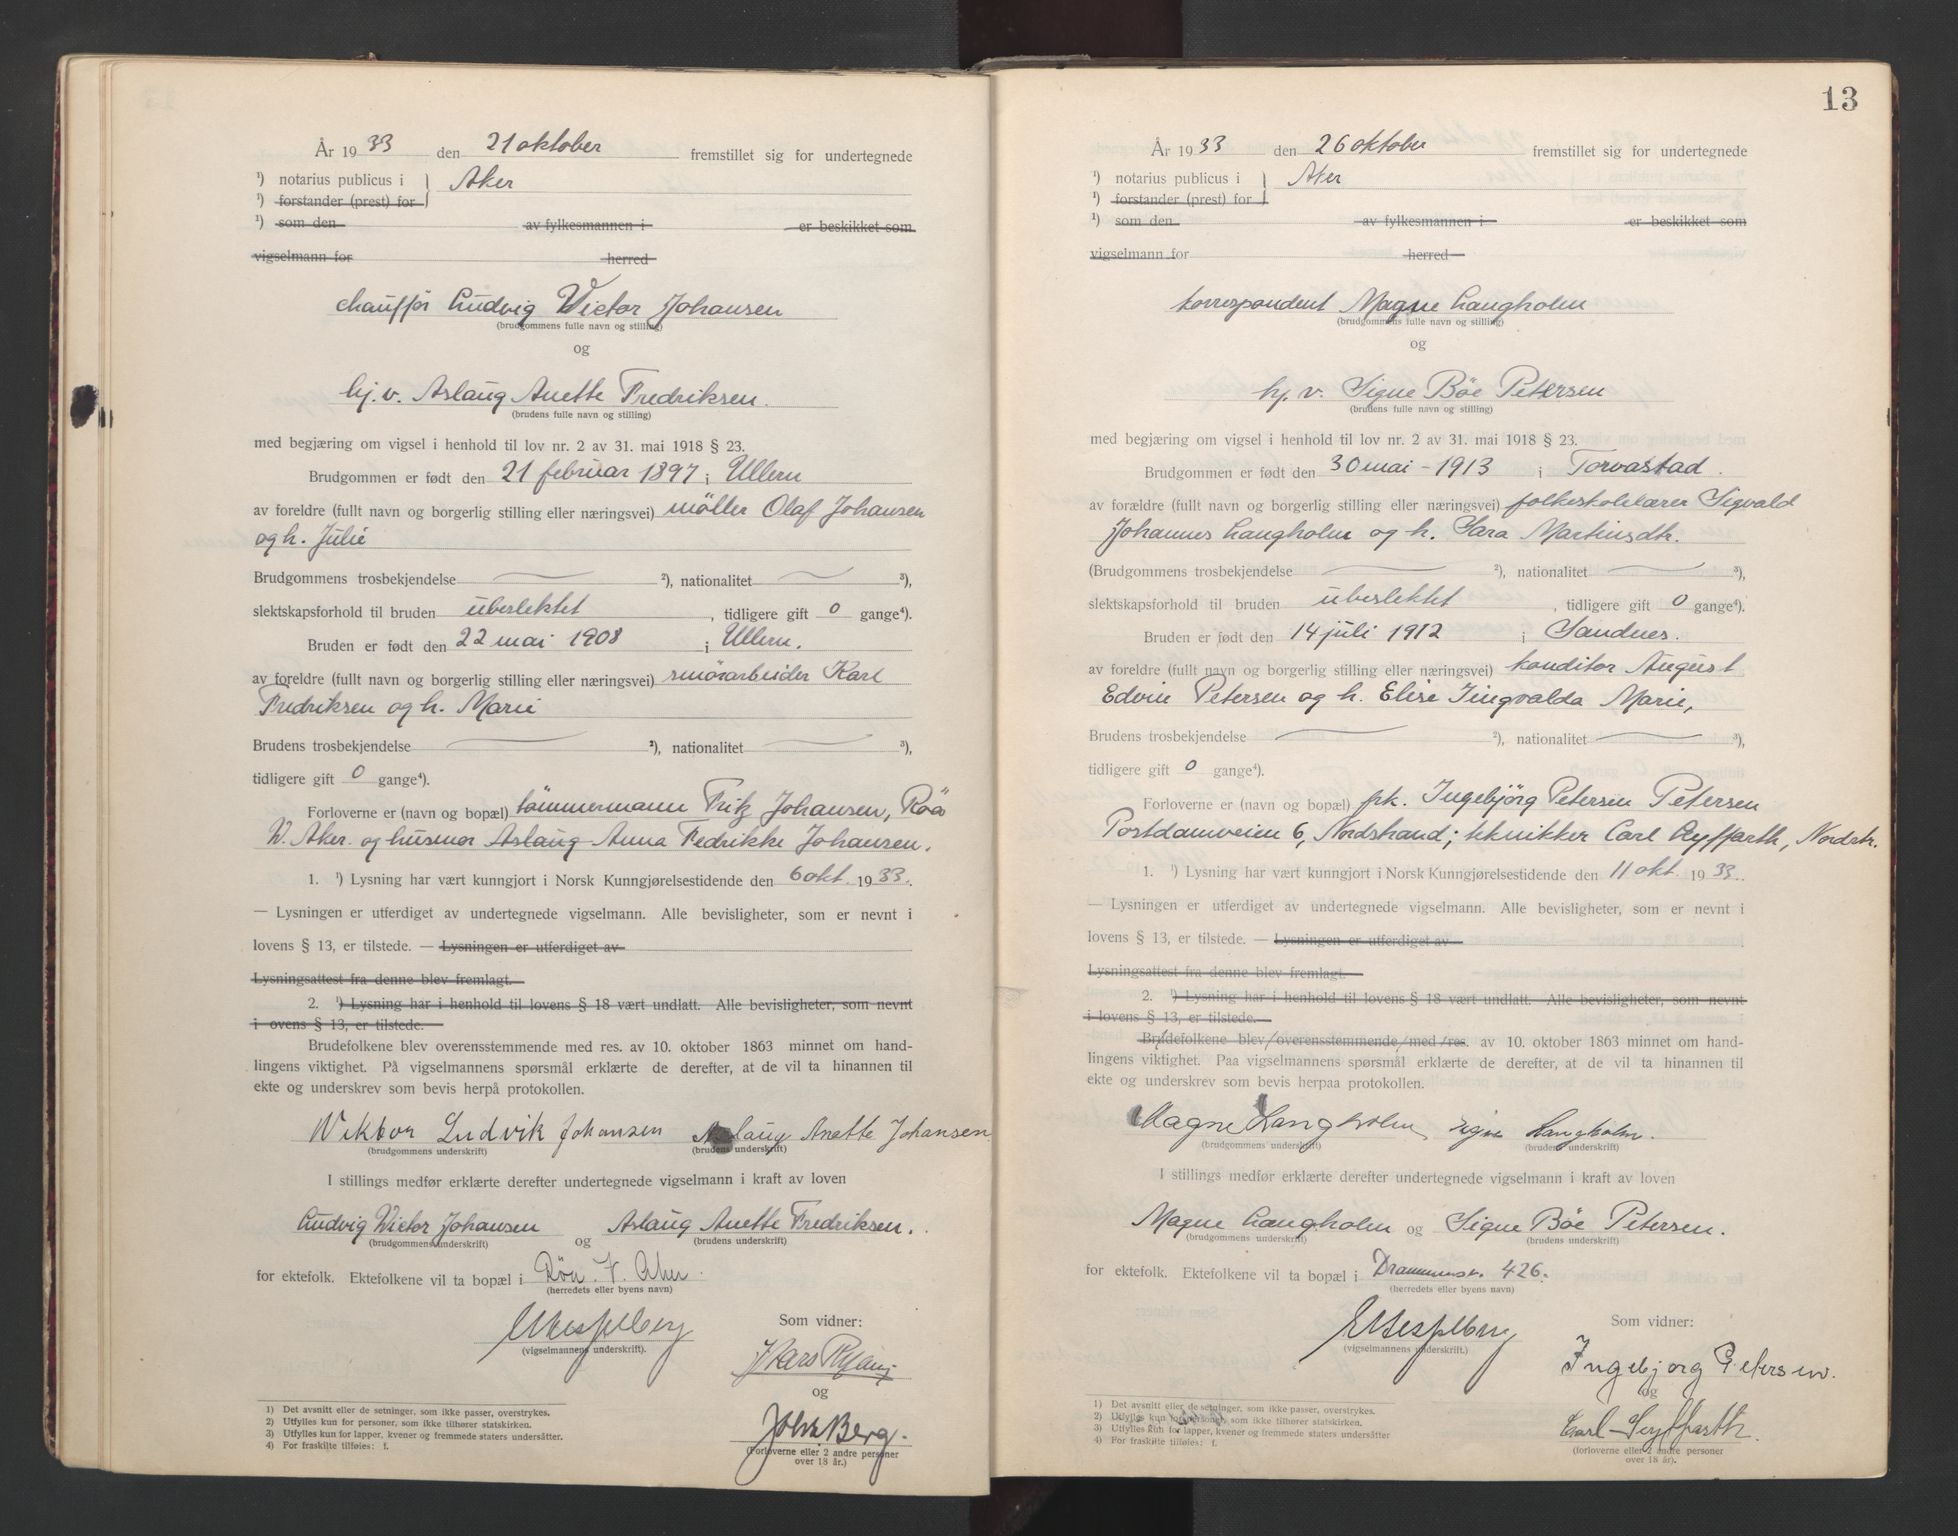 År 1933 den 21 oktober fremstillet sig for undertegnede
¹) notarius publicus i } Aker
¹) forstander (prest) for
¹) som den av fylkesmannen i er beskikket som
vigselmann for herred
chauffør Ludvig Victor Johansen
(brudgommens fulle navn og stilling)
og
hj. v. Aslaug Anette Fredriksen.
(brudens fulle navn og stilling)
med begjæring om vigsel i henhold til lov nr. 2 av 31. mai 1918 § 23.
Brudgommen er født den 21 februar 1897 i Ullern
av foreldre (fullt navn og borgerlig stilling eller næringsvei) möller Olaf Johansen
og h. Julie
Brudgommens trosbekjendelse ²), nationalitet ³),
slektskapsforhold til bruden ubeslektet, tidligere gift 0 gange⁴).
Bruden er født den 22 mai 1908 i Ullern.
av foreldre (fullt navn og borgerlig stilling eller næringsvei) smörarbeider Karl
Fredriksen og h. Marie
Brudens trosbekjendelse ²), nationalitet ³),
tidligere gift 0 gange⁴).
Forloverne er (navn og bopæl) tömmermann Fritz Johansen, Röa
V. Aker. og husmor Aslaug Anna Fedrikke Johansen.
1. ¹) Lysning har vært kunngjort i Norsk Kunngjørelsestidende den 6 okt. 1933.
— Lysningen er utferdiget av undertegnede vigselmann. Alle bevisligheter, som er nevnt i
lovens § 13, er tilstede. — Lysningen er utferdiget av
Lysningsattest fra denne blev fremlagt.
2. ¹) Lysning har i henhold til lovens § 18 vært undlatt. Alle bevisligheter, som nevnt
i ovens § 13, er tilstede.
Brudefolkene blev overensstemmende med res. av 10. oktober 1863 minnet om hand-
lingens viktighet. På vigselmannens spørsmål erklærte de derefter, at de vil ta hinannen til
ekte og underskrev som bevis herpå protokollen.
Viktor Ludvik Johansen Aslaug Anette Johansen
(brudgommens underskrift) (brudens underskrift)
I stillings medfør erklærte derefter undertegnede vigselmann i kraft av loven
Ludvig Victor Johansen og Aslaug Anette Fredriksen.
(brudgommens underskrift) (brudens underskrift)
for ektefolk. Ektefolkene vil ta bopæl i Röa. V. Aker.
(herredets eller byens navn)
(vigselmannens underskrift). Som vidner:
og
John Berg.
(Forloverne eller 2 andre personer
over 18 år.)
1) Det avsnitt eller de setninger, som ikke passer, overstrykes.
2) Utfylles kun for personer, som ikke tilhører statskirken.
3) Utfylles kun for lapper, kvener og fremmede staters undersåtter.
4) For fraskilte tilføies: f.
13
År 1933 den 26 oktober fremstillet sig for undertegnede
¹) notarius publicus i } Aker
¹) forstander (prest) for
¹) som den av fylkesmannen i er beskikket som
vigselmann for herred
korrespondent Magne Langholm
(brudgommens fulle navn og stilling)
og
hj. v. Signe Böe Petersen
(brudens fulle navn og stilling)
med begjæring om vigsel i henhold til lov nr. 2 av 31. mai 1918 § 23.
Brudgommen er født den 30 mai - 1913 i Torvastad.
av forældre (fullt navn og borgerlig stilling eller næringsvei) folkeskolelærer Sigvald
Johannes Langholm og h. Sara Martinsdtr.
(Brudgommens trosbekjendelse ²), nationalitet ³),
slektskapsforhold til bruden ubeslektet, tidligere gift 0 gange⁴).
Bruden er født den 14 juli 1912 i Sandnes.
av foreldre (fullt navn og borgerlig stilling eller næringsvei) konditor August
Edvin Petersen og h. Elise Ingvalda Marie,
Brudens trosbekjendelse ²), nationalitet ³),
tidligere gift 0 gange⁴).
Forloverne er (navn og bopæl) frk. Ingebjörg Petersen Petersen
Postdamveien 6, Nordstrand; tekniker Carl Seyffarth, Nordstr.
1. ¹) Lysning har vært kunngjort i Norsk Kunngjørelsestidende den 11 okt. 1933.
— Lysningen er utferdiget av undertegnede vigselmann. Alle bevisligheter, som er nevnt i
lovens § 13, er tilstede. — Lysningen er utferdiget av
Lysningsattest fra denne blev fremlagt.
2. ¹) Lysning har i henhold til lovens § 18 vært undlatt. Alle bevisligheter, som nevnt
i lovens § 13, er tilstede.
Brudefolkene blev overensstemmende med res. av 10. oktober 1863 minnet om hand-
lingens viktighet. Paa vigselmannens spørsmål erklærte de derefter, at de vil ta hinannen til
ekte og underskrev som bevis herpaa protokollen.
Magne Langholm Signe Langholm.
(brudgommens underskrift) (brudens underskrift)
I stillings medfør erklærte derefter undertegnede vigselmann i kraft av loven
Magne Langholm og Signe Böe Petersen.
(brudgommens underskrift) (brudens underskrift)
for ektefolk. Ektefolkene vil ta bopæl i Drammensv. 426.
(herredets eller byens navn)
(vigselmannens underskrift.) Som vidner:
Ingebjorg Petersen.
og
Carl Seyffarth.
(forloverne eller 2 andre personer
over 18 år).
1) Det avsnitt eller de setninger, som ikke passer, overstrykes.
2) Utfylles kun for personer, som ikke tilhører statskirken.
3) Utfylles kun for lapper, kvener og fremmede staters undersåtter
4) For fraskilte tilføies: f.